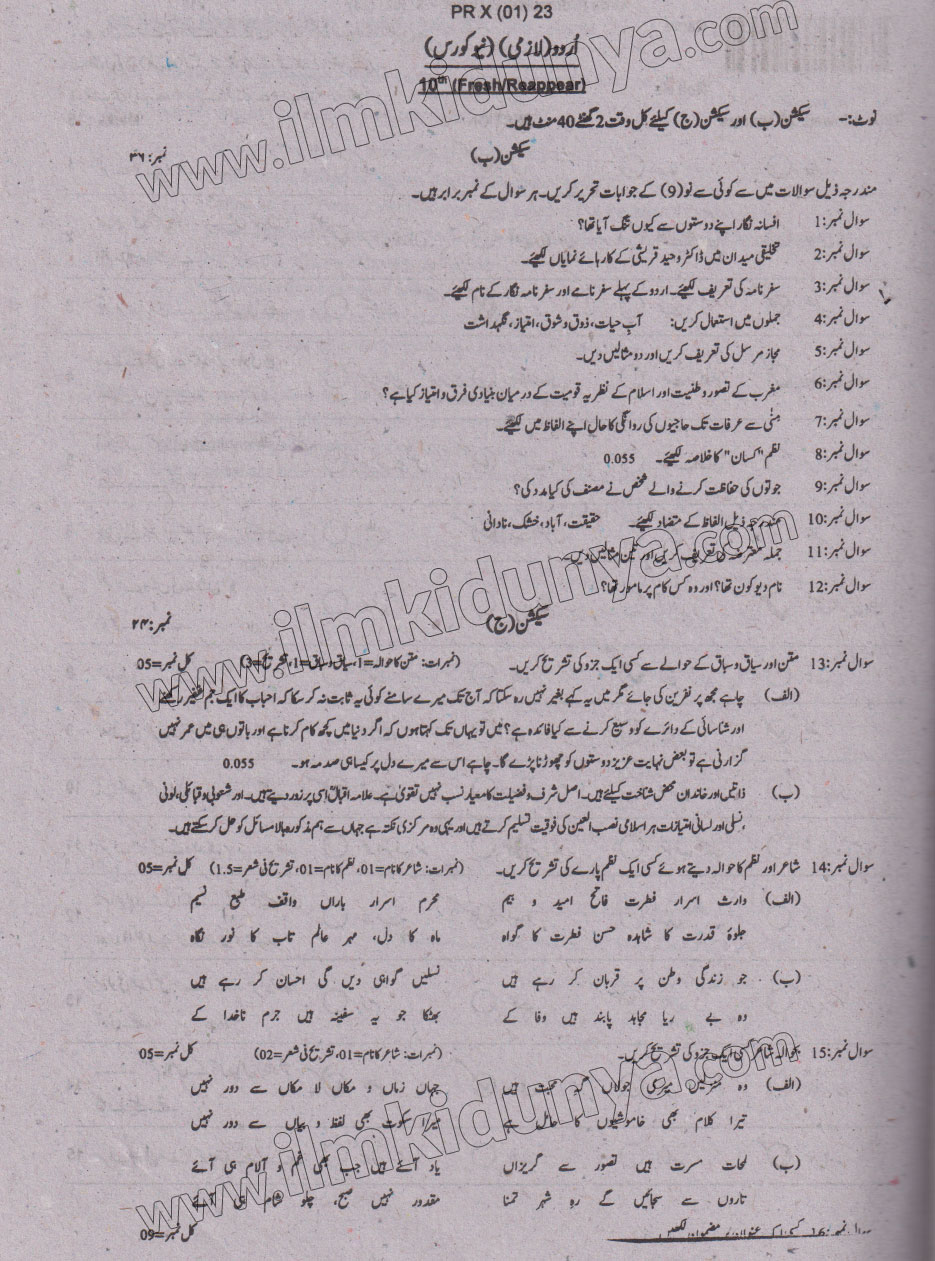 PR X (01) 23
اُردو (لازمی) (نیو کورس)
10th (Fresh/Reappear)
نوٹ:- سیکشن (ب) اور سیکشن (ج) کیلئے کل وقت 2 گھنٹے 40 منٹ ہیں۔
سیکشن (ب) نمبر: ۳۶
مندرجہ ذیل سوالات میں سے کوئی سے نو (9) کے جوابات تحریر کریں۔ ہر سوال کے نمبر برابر ہیں۔
سوال نمبر:1 افسانہ نگار اپنے دوستوں سے کیوں تنگ آیا تھا؟
سوال نمبر:2 تخلیقی میدان میں ڈاکٹر وحید قریشی کے کارہائے نمایاں لکھیئے۔
سوال نمبر:3 سفرنامہ کی تعریف لکھیئے۔ اردو کے پہلے سفرنامے اور سفرنامہ نگار کے نام لکھیئے۔
سوال نمبر:4 جملوں میں استعمال کریں: آبِ حیات، ذوق و شوق، امتیاز، نگہداشت
سوال نمبر:5 مجاز مرسل کی تعریف کریں اور دو مثالیں دیں۔
سوال نمبر:6 مغرب کے تصور وطنیت اور اسلام کے نظریہ قومیت کے درمیان بنیادی فرق و امتیاز کیا ہے؟
سوال نمبر:7 منیٰ سے عرفات تک حاجیوں کی روانگی کا حال اپنے الفاظ میں لکھیئے۔
سوال نمبر:8 نظم "کسان" کا خلاصہ لکھیئے۔ 0.055
سوال نمبر:9 جوتوں کی حفاظت کرنے والے شخص نے مصنف کی کیا مدد کی؟
سوال نمبر:10 مندرجہ ذیل الفاظ کے متضاد لکھیئے۔ حقیقت، آباد، خشک، نادانی
سوال نمبر:11 جملہ معترضہ کی تعریف کریں اور تین مثالیں دیں۔
سوال نمبر:12 نام دیو کون تھا؟ اور وہ کس کام پر مامور تھا؟
سیکشن (ج) نمبر: ۲۴
سوال نمبر:13 متن اور سیاق و سباق کے حوالے سے کسی ایک جزو کی تشریح کریں۔ (نمبرات: متن کا حوالہ=1، سیاق و سباق=1، تشریح=3) کل نمبر=05
(الف) چاہے مجھ پر نفرین کی جائے مگر میں یہ کہے بغیر نہیں رہ سکتا کہ آج تک میرے سامنے کوئی یہ ثابت نہ کر سکا کہ احباب کا ایک جم غفیر رکھنے
اور شناسائی کے دائرے کو وسیع کرنے سے کیا فائدہ ہے؟ میں تو یہاں تک کہتا ہوں کہ اگر دنیا میں کچھ کام کرنا ہے اور باتوں ہی میں عمر نہیں
گزارنی ہے تو بعض نہایت عزیز دوستوں کو چھوڑنا پڑے گا۔ چاہے اس سے میرے دل پر کیسا ہی صدمہ ہو۔ 0.055
(ب) ذاتیں اور خاندان محض شناخت کیلئے ہیں۔ اصل شرف و فضیلت کا معیار نسب نہیں تقویٰ ہے۔ علامہ اقبالؒ اسی پر زور دیتے ہیں۔ اور شعوبی و قبائلی، لونی
،نسلی اور لسانی امتیازات ہر اسلامی نصب العین کی فوقیت تسلیم کرتے ہیں اور یہی وہ مرکزی نکتہ ہے جہاں سے ہم مذکورہ بالا مسائل کو حل کر سکتے ہیں۔
سوال نمبر:14 شاعر اور نظم کا حوالہ دیتے ہوئے کسی ایک نظم پارے کی تشریح کریں۔ (نمبرات: شاعر کا نام=01، نظم کا نام=01، تشریح فی شعر=1.5) کل نمبر=05
(الف) وارث اسرار فطرت فاتح امید و بیم محرم اسرار باراں واقف طبع نسیم
جلوۂ قدرت کا شاہدہ حسن فطرت کا گواہ ماہ کا دل، مہر عالم تاب کا نور نگاہ
(ب) جو زندگی وطن پر قربان کر رہے ہیں نسلیں گواہی دیں گی احسان کر رہے ہیں
وہ بے ریا مجاہد پابند ہیں وفا کے بھٹکا جو یہ سفینہ ہیں جرم ناخدا کے
سوال نمبر:15 بحوالہ شاعر کسی ایک جزو کی تشریح کریں۔ (نمبرات: شاعر کا نام=01، تشریح فی شعر=02) کل نمبر=05
(الف) وہ منزلیں میری جولاں گہہ محبت ہیں جہاں زماں و مکاں لا مکاں سے دور نہیں
تیرا کلام بھی خاموشیوں کا حامل ہے میرا سکوت بھی لفظ و بیاں سے دور نہیں
(ب) لمحات مسرت ہیں تصور سے گریزاں یاد آئے ہیں جب بھی غم و آلام ہی آئے
تاروں سے سجائیں گے رہ شہر تمنا مقدور نہیں صبح، چلو شام ہی آئے
سوال نمبر:16 کسی ایک عنوان پر مضمون لکھیں کل نمبر=09
www.ilmkidunya.com
www.ilmkidunya.com
www.ilmkidunya.com